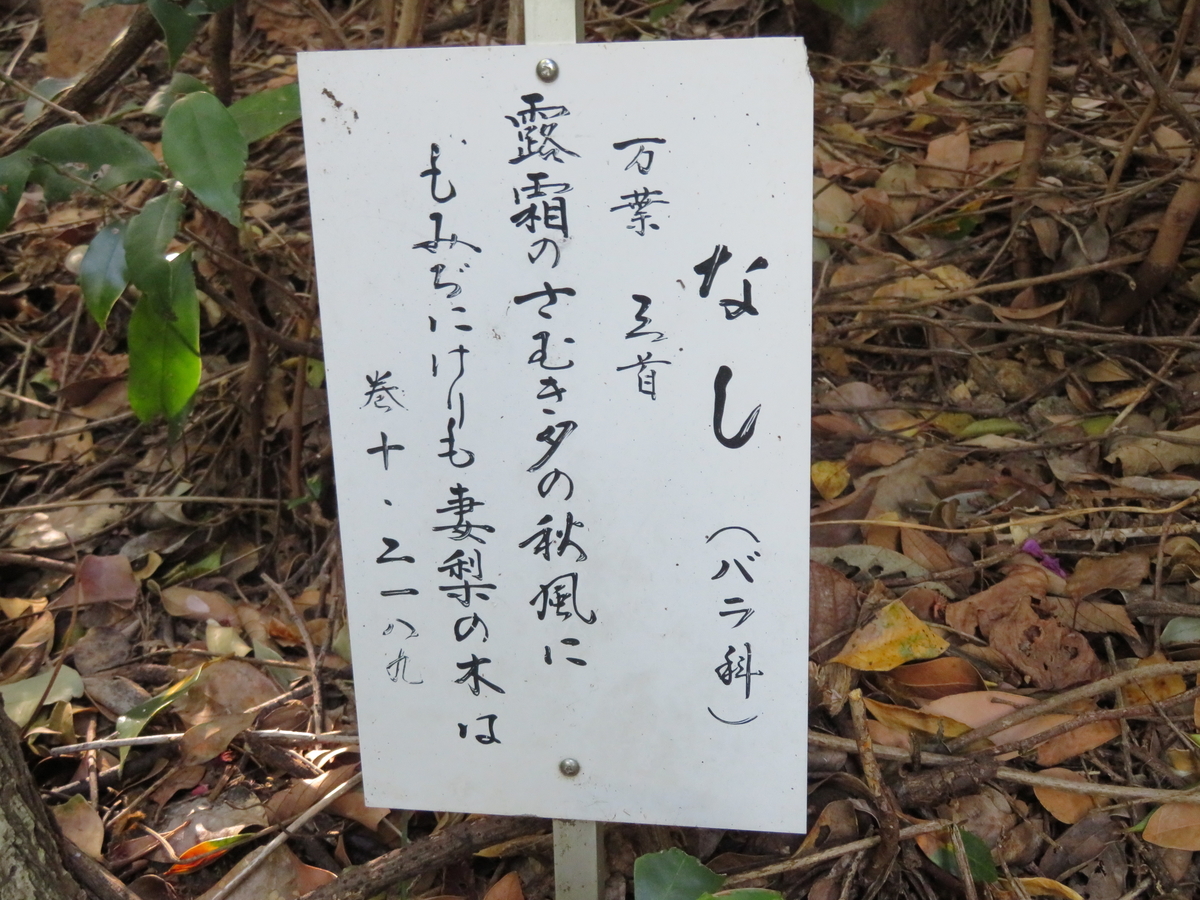 なし（バラ科）
万葉 三首
露霜のさむき夕の秋風に
もみぢにけりも妻梨の木は
巻十・二一八九